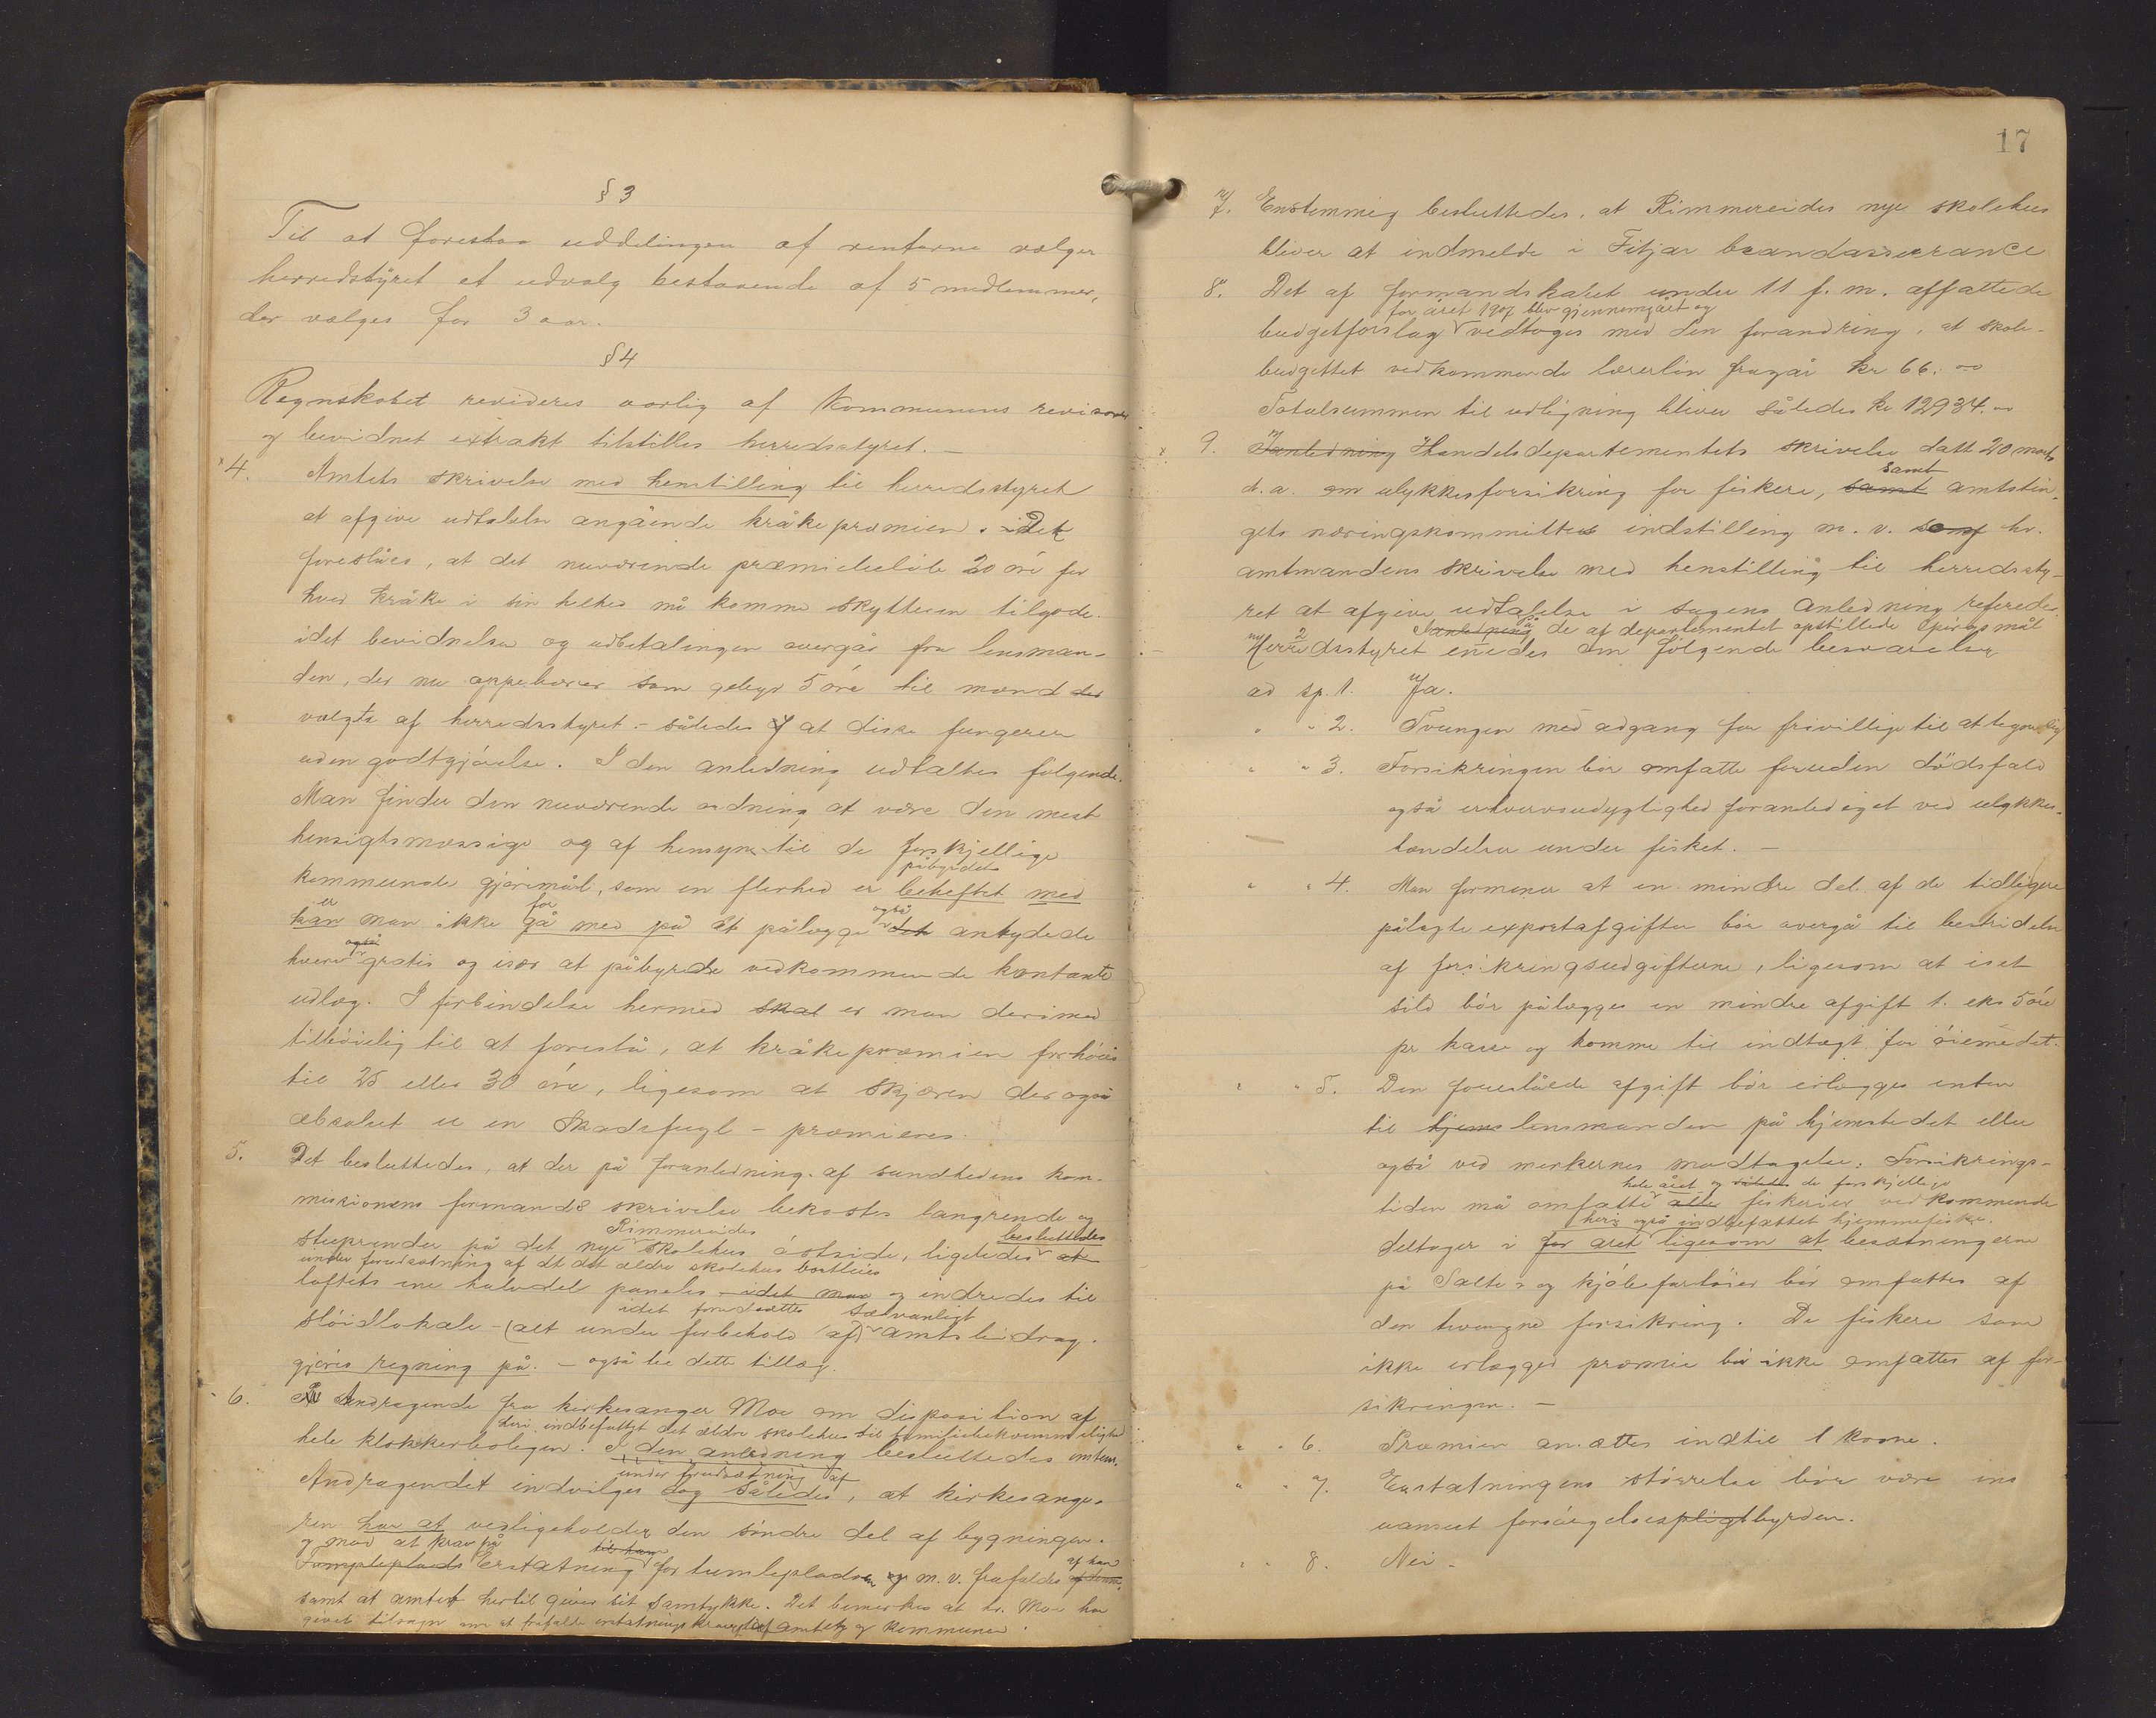 § 3
Til at forestaa uddelingen af renterne vælger
herredstyret et udvalg bestaaende af 5 medlemmer,
der vælges for 3 aar.
§ 4
Regnskabet revideres aarlig af kommunens revisorer
og bevidnet extrakt tilstilles herredsstyret. –
x 4. Amtets skrivelse med henstilling til herredsstyret
at afgive udtalelse angående kråkepræmien. Det
foreslåes, at det nuværende præmiebeløb 20 øre for
hver kråke i sin helhed må komme skytteren tilgode.
idet bevidnelse og udbetalingen overgår fra lensman-
den, der nu oppebærer som gebyr 5 øre til mænd der
valgte af herredsstyret – således at disse fungerer
uden godtgjørelse. I den anledning udtaltes følgende.
Man finder den nuværende ordning at være den mest
hensigtsmæssige og af hensyn til de forskjellige
påbyrdet
kommunale gjøremål, som en flerhed er beheftet med
er for også
kan man ikke gå med på at pålægge det antydede
også
hverv gratis og især at påbyrde vedkommende kontante
udlæg. I forbindelse hermed skal er man derimod
tilbøielig til at foreslå, at kråkepræmien forhøies
til 25 eller 30 øre, ligesom at skjæren der også
absolut er en skadefugl – præmieres.
5. Det besluttedes, at der på foranledning af sundhedens kom-
missionens formands skrivelse bekostes langrende og
Rimmereides besluttedes
stuprender på det nye skolehus østside, ligeledes at
under forudsætning af at det ældre skolehus bortleies
loftets ene halvdel paneles idet man og indredes til
idet forudsættes sædvanligt
sløidlokale – (alt under forbehold af) amtsbidrag.
gjøres regning på. – også til dette tillæg.
6. Andragende fra kirkesanger Moe om disposition af
heri indbefattet det ældre skolehus til familiebekvemmelighed
hele klokkerboligen. I den anledning besluttedes enstem.
under forudsætning af
Andragendet indvilges dog således, at kirkesange-
ren har at vedligeholder den søndre del af bygningen.
og mod at krav på til ham af han
Tumleplads Erstatning for tumlepladsen og m. v. frafaldes af denne,
samt at amtet hertil giver sit samtykke. Det bemerkes at hr. Moe har
givet tilsagn om at frafalde erstatningskrav amtet og kommunen.
17
7. Enstemmig besluttedes, at Rimmereides nye skolehus
bliver at indmelde i Fitjar brandassurance
8. Det af formandskabet under 11 f. m. affattede
for året 1907 blev gjennemgået og
budgetforslag vedtoges med den forandring, at skole-
budgettet vedkommende lærerløn fragår kr 66.00
Totalsummen til udligning bliver således kr 12934.00
x 9. I anledning Handelsdepartementets skrivelse datt 20 marts
samt
d. a. om ulykkesforsikring for fiskere, samt amtstin-
gets næringskommittees indstilling m. v. hr.
amtmandens skrivelse med henstilling til herredssty-
ret at afgive udtalelse i sagens anledning refereredes.
I anledning på de af departementet opstillede spørgsmål
Herredsstyret enedes om følgende besvarelser
ad sp. 1. Ja.
" " 2. Tvungen med adgang for frivillige til at tegne sig
" " 3. Forsikringen bør omfatte foruden dødsfald
også erhvervsudygtighed foranlediget ved ulykkes-
hændelse under fisket. –
" " 4. Man formener at en mindre del af de tidligere
pålagte exportafgifter bør overgå til bestridelse
af forsikringsudgifterne, ligesom at iset
sild bør pålægges en mindre afgift t. eks 5 øre
pr kasse og komme til indtægt for øiemedet.
" " 5. Den foreslåede afgift bør erlægges enten
til hjems lensmanden på hjemstedet eller
også ved merkernes modtagelse: Forsikrings-
hele året og således de forskjellige
tiden må omfatte alle fiskerier vedkommende
heri også indbefattet hjemmefiske.
deltager i for året ligesom at besætningerne
på Salte- og kjøbefartøier bør omfattes af
den tvungne forsikring. De fiskere som
ikke erlægger præmie bør ikke omfattes af for-
sikringen. –
" " 6. Præmien ansættes indtil 1 krone.
" " 7. Erstatningens størrelse bør være ens
uanseet forsørgelsespligtbyrden.
" " 8. Nei –